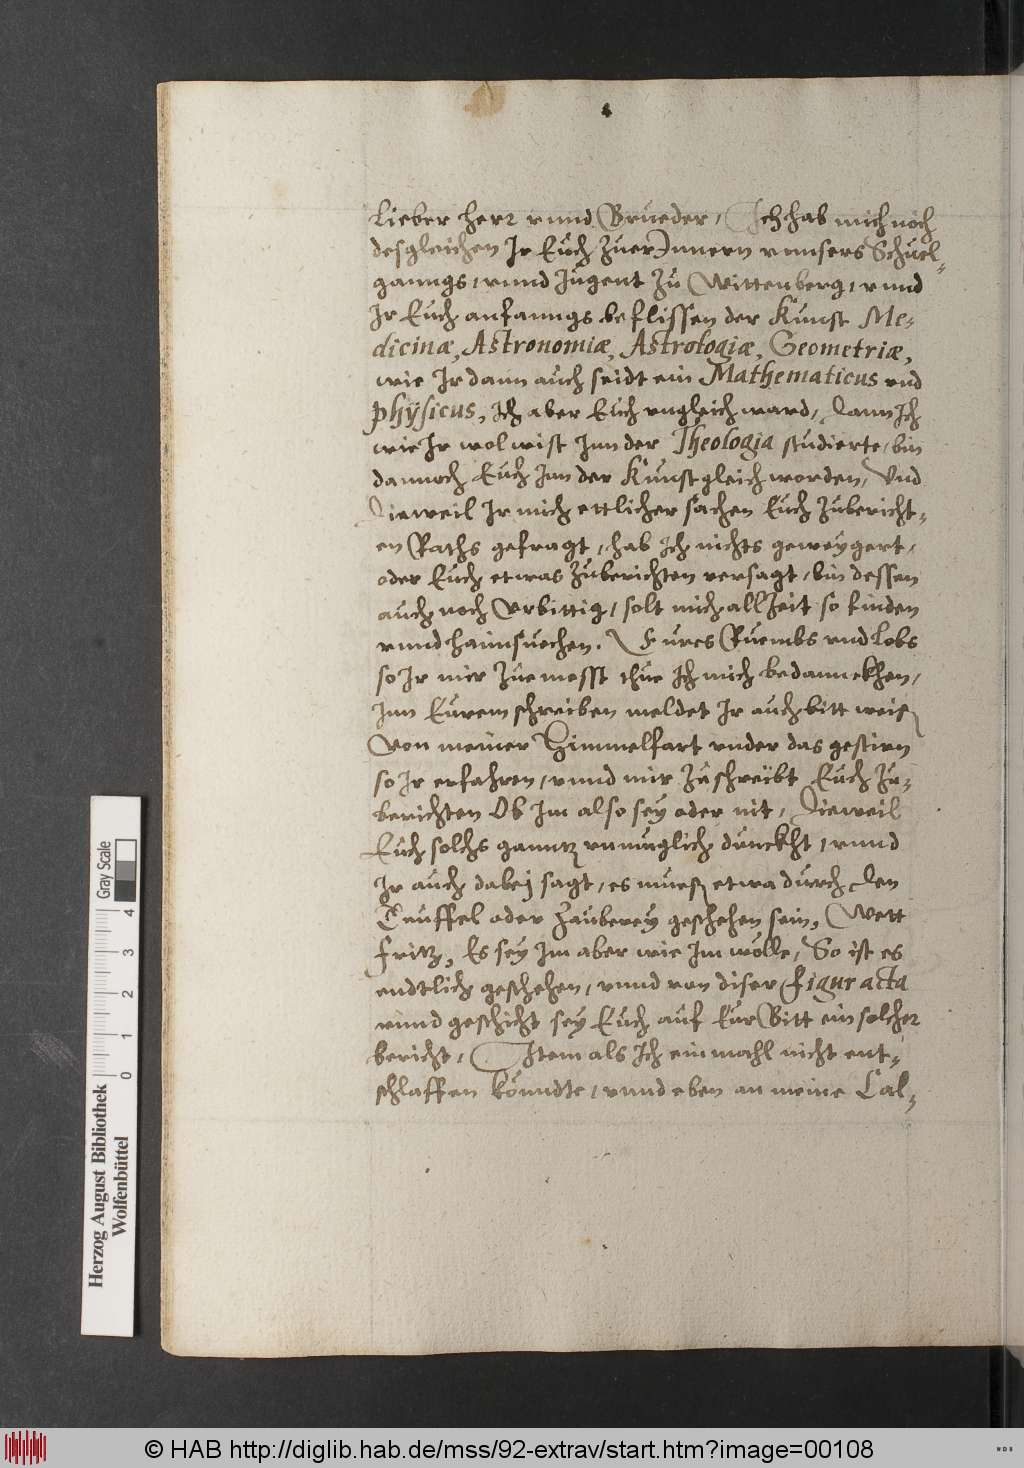 Lieber Herr vnnd Brueder, Ich hab mich noch
desgleichen Ir Euch Zuer Innern vnnsers Schuel-
ganngs, vnnd Jugent zu Wittenberg, vnnd
Ir Euch anfanngs beflissen der Kunst Me-
dicinæ, Astronomiæ, Astrologiæ, Geometriæ,
wie Ir dann auch seidt ein Mathematicus vnd
phÿsicus, Ich aber Euch vngleich ward, dann Ich
wie Ir wol wist Inn der Theologia studierte, bin
dannoch Euch Inn der Kunst gleich worden, Vnd
dieweil Ir mich ettlicher sachen Euch zubericht-
en Raths gefragt, hab Ich nichts geweygert,
oder Euch etwas zuberichten versagt, bin dessen
auch noch Vrbittig, solt mich allzeit so finden
vnnd haimsuechen. Eures Ruembs vnd lobs
so Ir mir zue messt thue Ich mich bedannckhen,
Inn Eurem schreiben meldet Ir auch bitt weiß
Von meiner Himmelfart vnder das gestirn
so Ir erfahren, vnnd mir zu schreibt Euch zu-
berichten Ob Im also sey oder nit, dieweil
Euch solchs ganntz vnmuglich dunckht, vnnd
Ir auch dabej sagt, es mueß etwa durch den
Teuffel oder Zauberey geschehen sein, Wett
fritz, Es sey Im aber wie Im wölle, So ist es
endtlich geschehen, vnnd von diser figur acta
vnnd geschicht sey Euch auf Eur Bitt ein solcher
bericht, Item als Ich einmahl nicht ent-
schlaffen könndte, vnnd eben an meine Cal-
Herzog August Bibliothek
Wolfenbüttel
Gray Scale
0 1 2 3 4
© HAB http://diglib.hab.de/mss/92-extrav/start.htm?image=00108